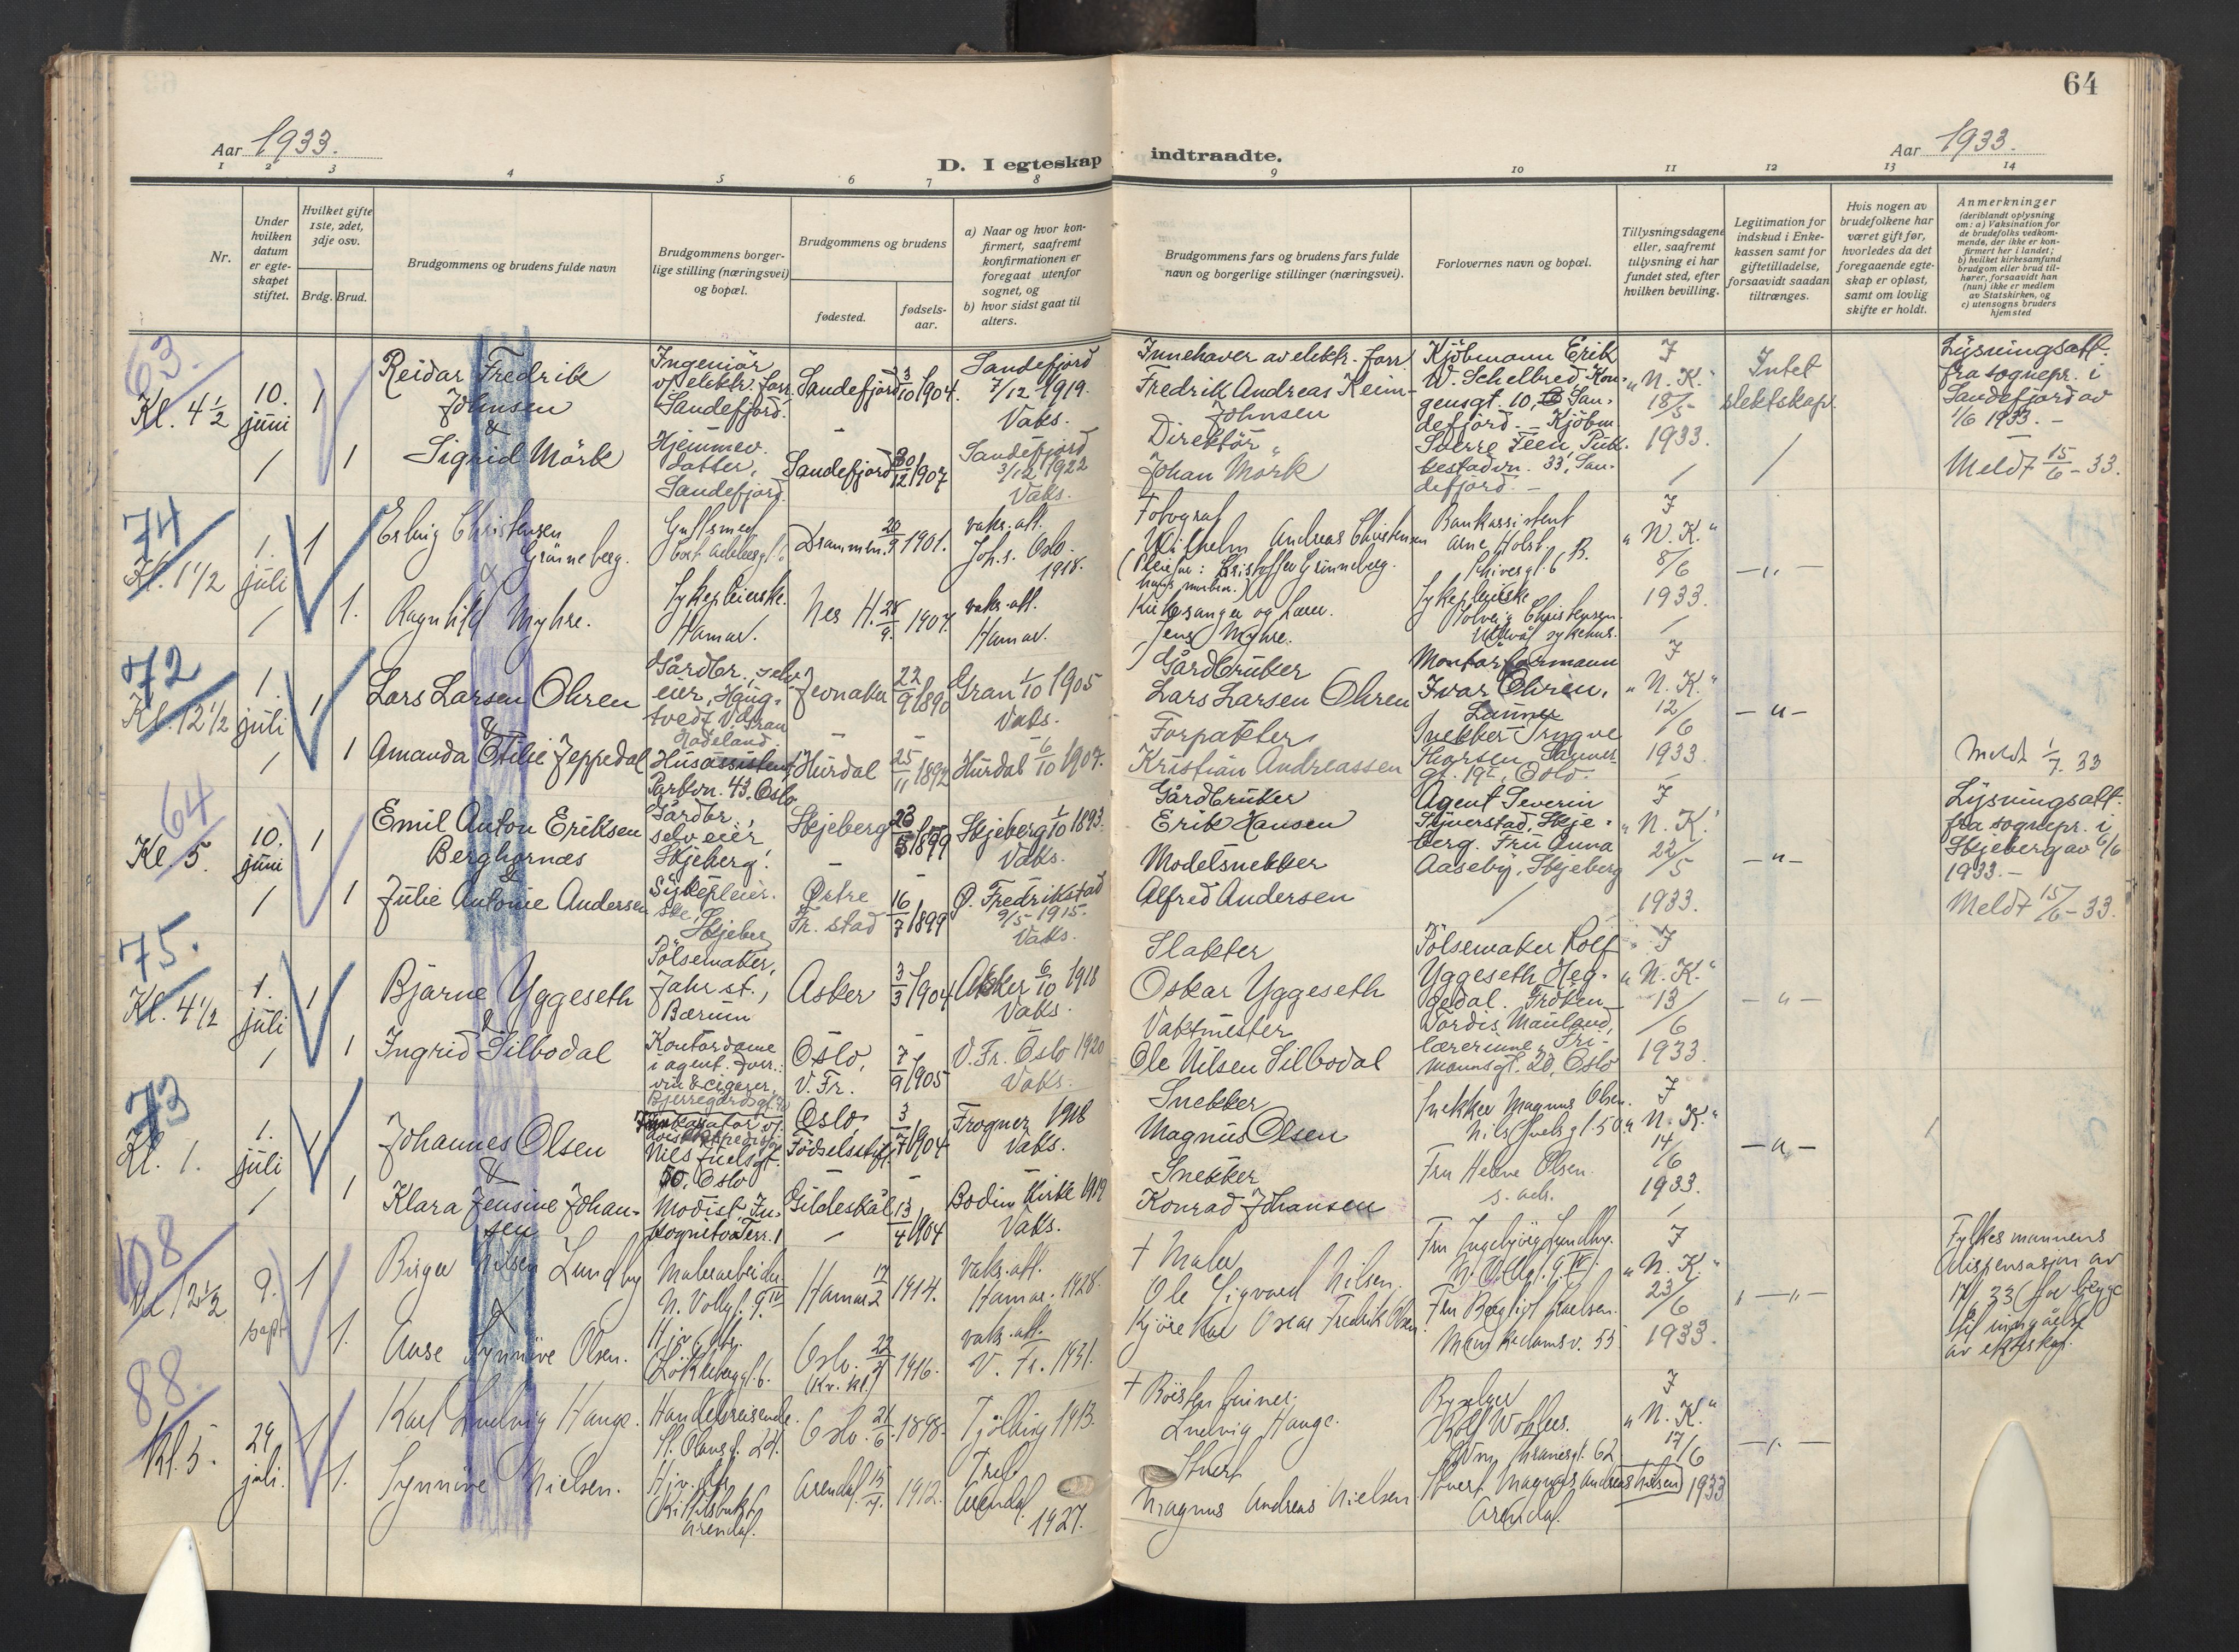 64
Aar 1933.
D. I egteskap indtraadte.
Aar 1933.
1 2 3 4 5 6 7 8 9 10 11 12 13 14
Nr.
Under hvilken datum er egteskapet stiftet.
Hvilket gifte 1ste, 2det, 3dje osv.
Brdg. Brud.
Brudgommens og brudens fulde navn
Brudgommens borgerlige stilling (næringsvei) og bopæl.
Brudgommens og brudens
fødested.
fødselsaar.
a) Naar og hvor konfirmert, saafremt konfirmationen er foregaat utenfor sognet, og
b) hvor sidst gaat til alters.
Brudgommens fars og brudens fars fulde navn og borgerlige stillinger (næringsvei).
Forlovernes navn og bopæl.
Tillysningsdagene eller, saafremt tillysning ei har fundet sted, efter hvilken bevilling.
Legitimation for indskud i Enkekassen samt for giftetilladelse, forsaavidt saadan tiltrænges.
Hvis nogen av brudefolkene har været gift før, hvorledes da det foregaaende egteskap er opløst, samt om lovlig skifte er holdt.
Anmerkninger
(deriblandt oplysning om: a) Vaksination for de brudefolks vedkommende, der ikke er konfirmert her i landet; b) hvilket kirkesamfund brudgom eller brud tilhører, forsaavidt han (hun) ikke er medlem av Statskirken, og c) utensogns bruders hjemsted
63.
Kl. 4 1/2
10. juni
1
Reidar Fredrik Johnsen
&
Ingeniör v/ elektr. forr. Sandefjord.
Sandefjord 3/10 1904.
Sandefjord 7/12 1919. Vaks.
Innehaver av elektr. forr. Fredrik Andreas Keim-Johnsen
Kjöbmann Erik W. Schelbred, Kongensgt. 10, Sandefjord. - Kjöbm. Sverre Feen, Pukkestadvn. 33, Sandefjord. -
I "N. K." 18/5 1933.
Intet slektskap.
Lysningsatt. fra sognepr. i Sandefjord av 1/6 1933. -
1
Sigrid Mörk
Hjemmev. datter, Sandefjord.
Sandefjord 30/12 1907
Sandefjord 3/12 1922 Vaks.
Direktör Johan Mörk
Meldt 15/6 - 33.
74
Kl. 1 1/2
1. juli
1
Erling Christensen Grünneberg.
&
Gullsmed
Drammen. 20/9 1901.
vaks. att. Joh.s. Oslo. 1918.
Fotograf Wilhelm Andreas Christensen
Bankassistent Arne Holst
I "N. K." 8/6 1933
- " -
1.
Ragnhild Myhre.
Sykepleierske. Hamar.
Nes H. 28/9. 1907.
vaks. att. Hamar.
Kirkesanger og lærer. Jens Myhre.
Sykepleierske Solveig Christensen. Ullevål sykehus.
72
Kl. 12 1/2
1. juli
1
Lars Larsen Ohren
&
Gårdbr., selveier, Haugtvedt V. Gran Hadeland
Jevnaker 22/9 1890
Gran 1/10 1905 Vaks.
Gårdbruker Lars Larsen Ohren
Montörformann Ivar Ohren, Lunner
I "N. K." 12/6 1933
- " -
1
Amanda Otilie Jeppedal
Husassistent, Parkvn. 43, Oslo
Hurdal 25/11 1892
Hurdal 6/10 1907.
Forpakter Kristian Andreassen
Snekker Trygve Thorsen, Sannergt. 19, Oslo.
Meldt 1/7. 33
64
Kl. 5.
10. juni
1
Emil Anton Eriksen Berghornæs
&
Gårdbr., selveier Skjeberg.
Skjeberg
Skjeberg 1/10 1893. Vaks.
Gårdbruker Erik Hansen
Agent Severin Skjeberg. Fru Anna Aaseby, Skjeberg
I "N. K." 22/5 1933.
- " -
Lysningsatt. fra sognepr. i Skjeberg av 6/6 1933. -
1
Julie Antonie Andersen
Sykepleierske, Skjeberg
Østre Fr. stad 16/7 1899
Ø. Fredrikstad 9/5 - 1915. Vaks.
Modelsnekker Alfred Andersen
Meldt 15/6 - 33.
75.
Kl. 4 1/2
1. juli
1
Bjarne Yggeseth
&
Pölsemaker, Jahr st., Bærum
Asker 3/3 1904
Asker 6/10 1918 Vaks.
Slakter Oskar Yggeseth
Pölsemaker Rolf Yggeseth, Heggedal.
I "N. K." 13/6 1933
- " -
1
Ingrid Silbodal
Kontordame i agent. forr.: vin & cigarer, Bjerregårdsgt.
Oslo, V. Fr. 7/9 1905
V. Fr. Oslo 1920 Vaks.
Vaktmester Ole Nilsen Silbodal
Tordis Mauland, lærerinne, Frimannsgt. 20, Oslo
73
Kl. 1.
1. juli
1
Johannes Olsen
&
Nils Juelsgt. 50, Oslo
Oslo, Födselsstift. 3/7 1904
Frogner 1918 Vaks.
Snekker Magnus Olsen
Snekker Magnus Olsen. Nils Juels gt. 50
I "N. K." 14/6 1933.
- " -
1
Klara Jensine Johansen
Modist, Inkognito Terr. 1
Gildeskål 13/4 1904
Bodin Kirke 1919 Vaks.
Snekker Konrad Johansen
Fru Helene Olsen. s. adr.
108
Kl 12 1/2
9. sept
1
Birger Nilsen Lundby
&
Malerarbeider N. Vollgt. 9 IV
Hamar 1914.
Vaks. att. Hamar. 1928.
† Maler Ole Sigvard Nilsen.
Fru Ingebjörg Lundby. N. Vollgt. 9 IV.
I "N. K." 23/6 1933.
" - " -
Fylkesmannens dispensasjon av 17/6 33 for begge til inngåelse av ekteskap.
1.
Aase Synnöve Olsen.
Hjv. dtr. Lökkeberggt. 6.
Oslo. (Kr. kl.) 1916.
vaks. att. V. Fr. 1931.
Kjörekar Oscar Fredrik Olsen
Munkedamsv. 55
88.
Kl. 5.
29 juli.
1
Karl Ludvig Hauge.
Handelsreisende. St. Olavsgt. 24.
Oslo. 21/6. 1898.
Tjölling 1913.
† Ludvig Hauge.
Rolf Wohlers.
I "N. K." 17/6 1933
- " -
1.
Synnöve Nielsen.
Hjv. dtr. Kittelsbukt Arendal.
Arendal. 1912.
Arendal. 1927.
Stuert Magnus Andreas Nielsen
Stuert Magnus Andreas Nielsen Arendal.